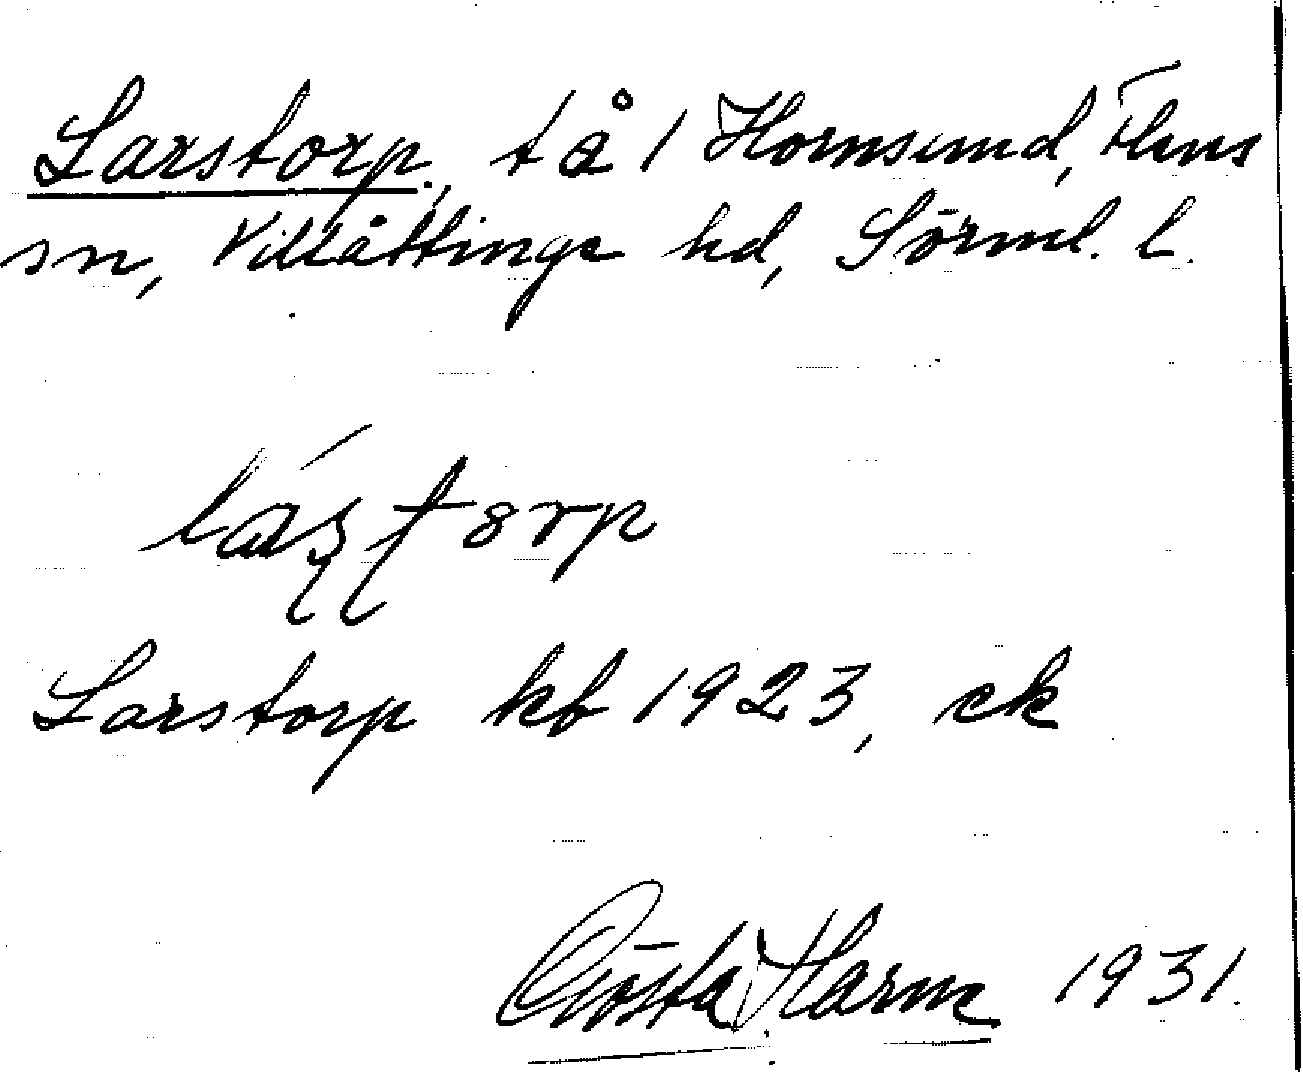 Larstorp, t å 1 Hornsund, Flens
sn, Villåttinge hd, Sörml. l.
Larstorp kb 1923, ek
Gösta Harne 1931.